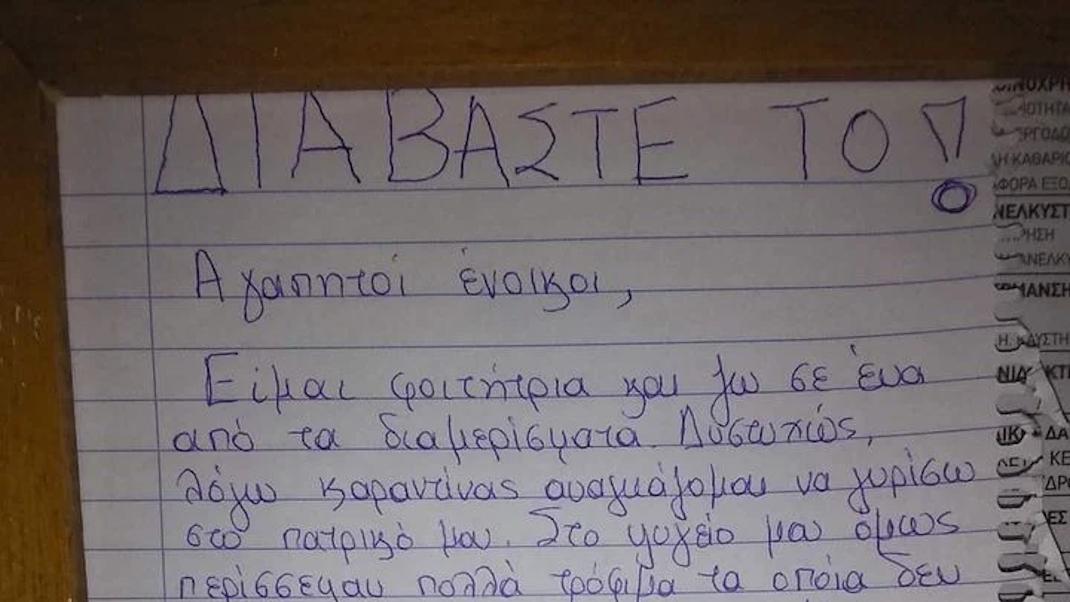 ΔΙΑΒΑΣΤΕ ΤΟ!
Αγαπητοί ένοικοι,
Είμαι φοιτήτρια και ζω σε ένα
από τα διαμερίσματα. Δυστυχώς,
λόγω καραντίνας αναγκάζομαι να γυρίσω
στο πατρικό μου. Στο ψυγείο μου όμως
περίσσεψαν πολλά τρόφιμα τα οποία δεν
ΚΑΘΑΡΙ
ΦΟΡΑ ΕΞΟ
ΝΕΛΚΥΣΤ
ΡΗΣΗ
ΑΝΕΛΚ
ΜΑΝΣΗ
ΔΑ
ΚΕ